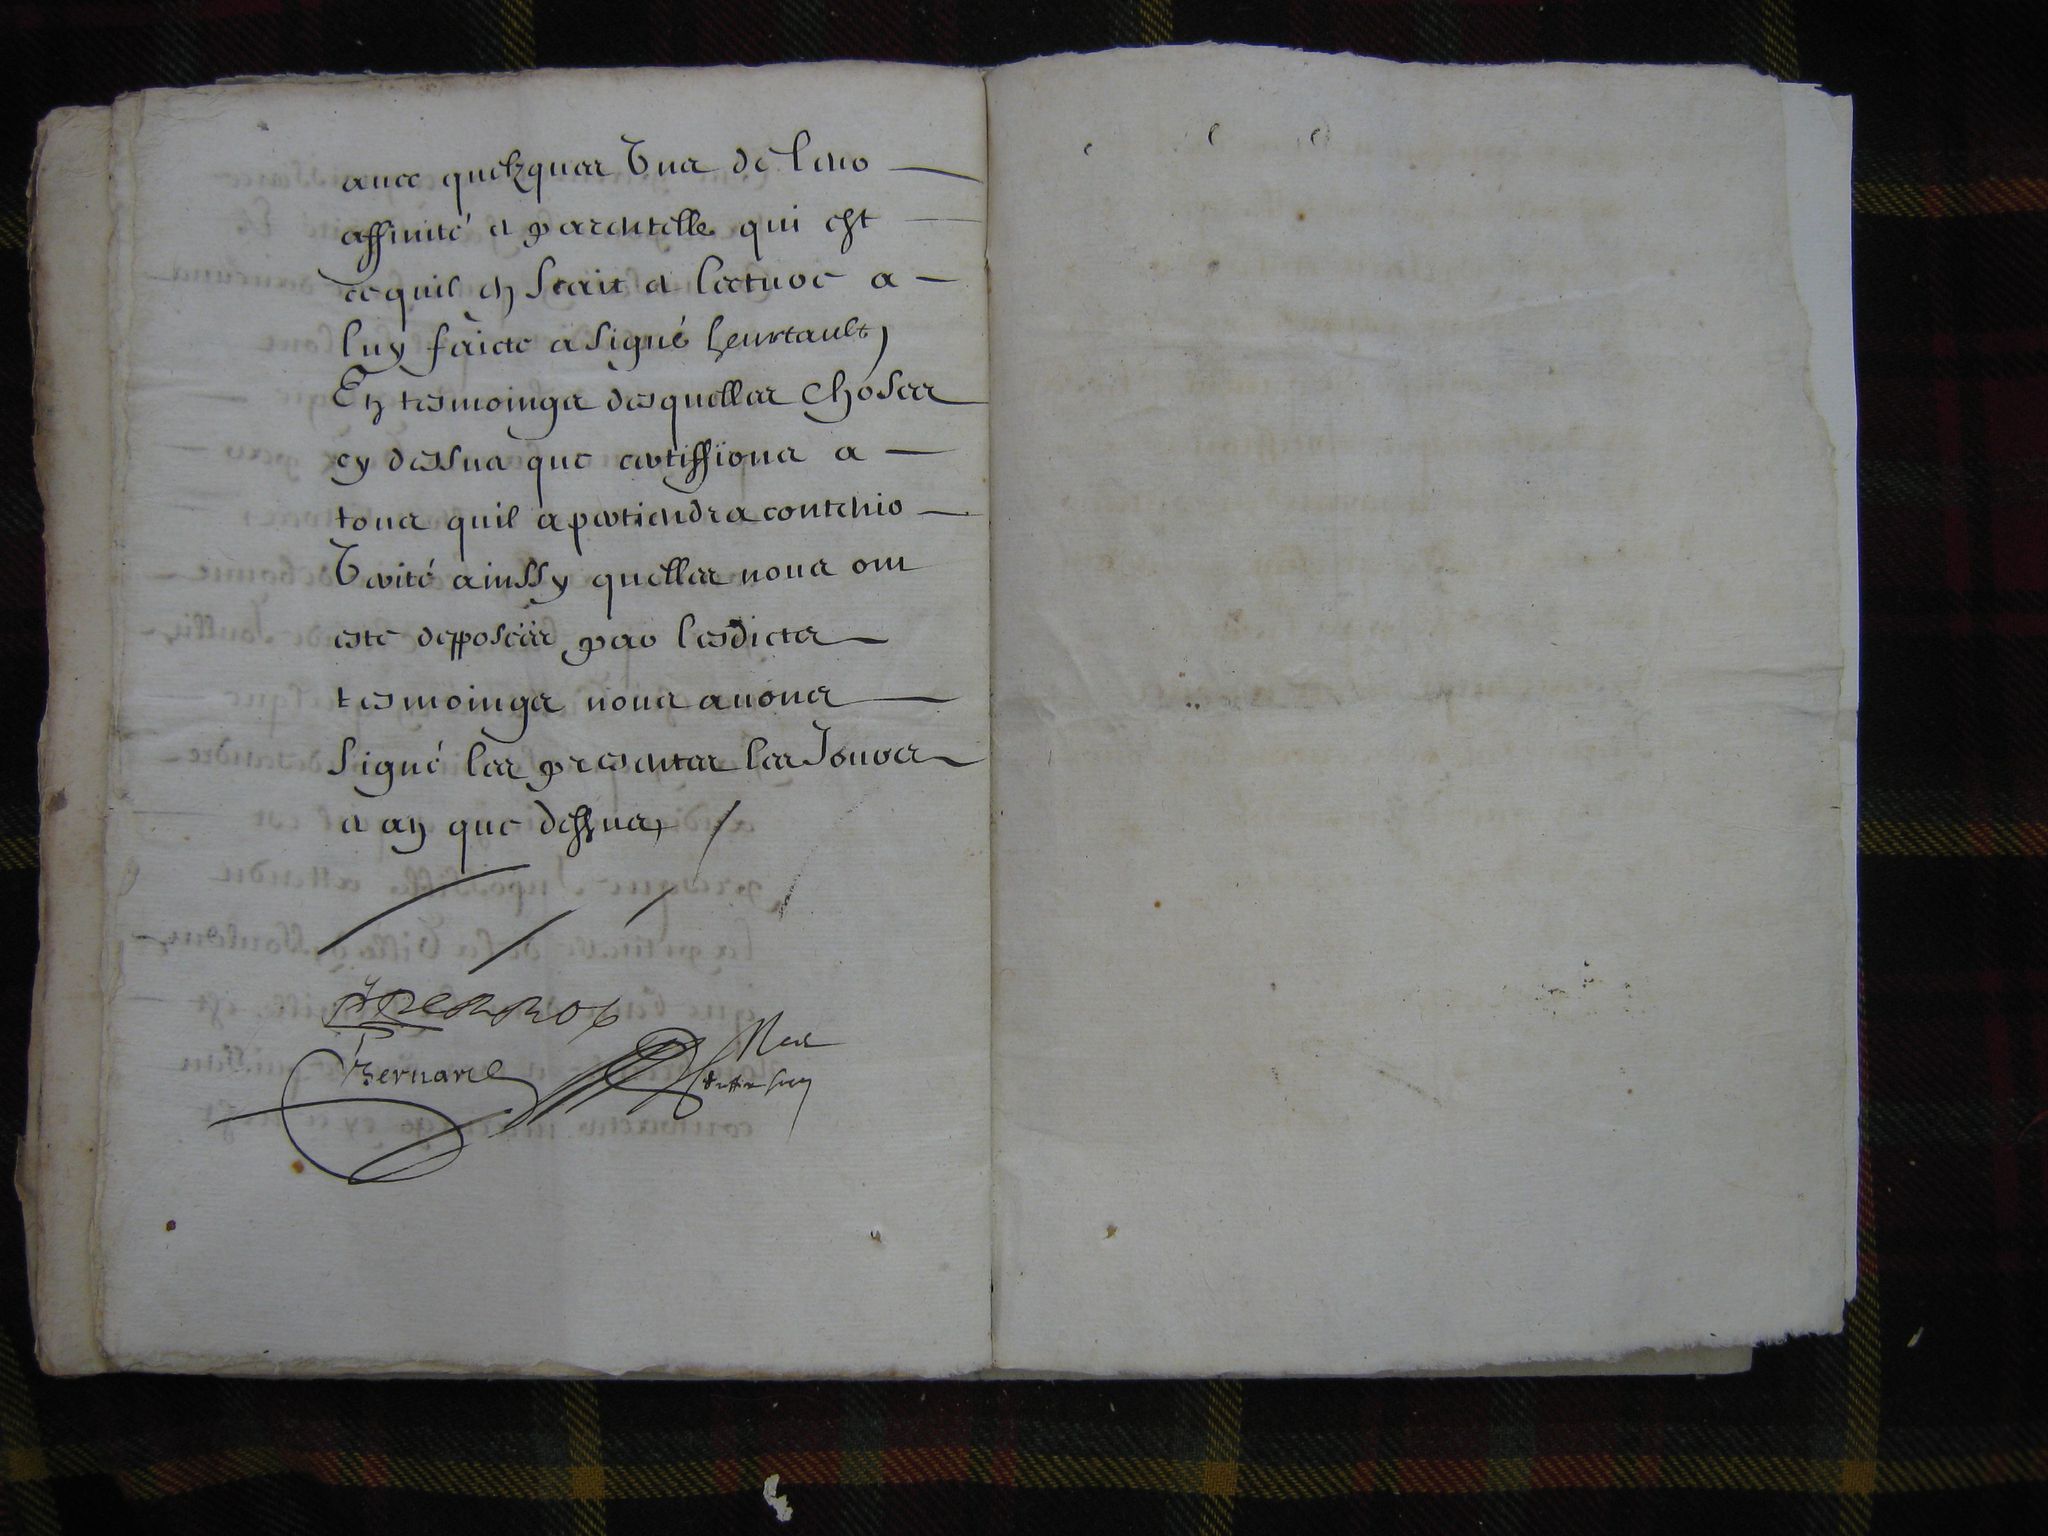 auec quelzques Vns de leur
affinité et parentelle qui est
ce quil en scait et lecture a
luy faicte a signé heurtault,
En tesmoings desquelles choses
cy dessus que certiffions a
tous quil apartiendra contenir
Verité ainssy quelles nous ont
esté depposées par lesdicts
tesmoings nous auons
signé les presentes les Jours
et an que dessus, /
Bernard